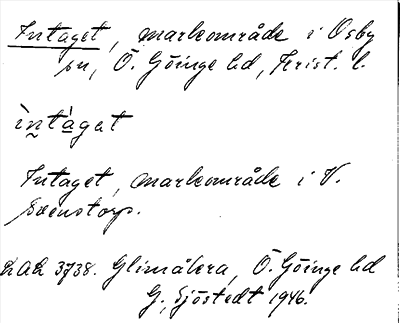 Intaget, markområde i Osby
sn, Ö. Göinge hd, Krist. l.
ìntàget
Intaget, markområde i V.
Svenstorp.
LAL 3738. Glimåkra, Ö. Göinge hd
G. Sjöstedt 1946.